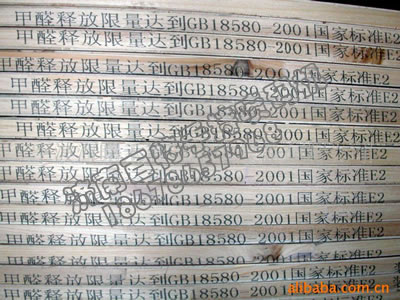 甲醛释放限量达到GB18580-2001国家标准E2
甲醛释放限量达到GB18580-2001国家标准E2
甲醛释放限量达到GB18580-2001国家标准E2
甲醛释放限量达到GB18580-2001国家标准E2
甲醛释放限量达到GB18580-2001国家标准E2
甲醛释放限量达到GB18580-2001国家标准E2
甲醛释放限量达到GB18580-2001国家标准E2
甲醛释放限量达到GB18580-2001国家标准E2
甲醛释放限量达到GB18580-2001国家标准E2
甲醛释放限量达到GB18580-2001国家标准E2
甲醛释放限量达到GB18580-2001国家标准E2
甲醛释放限量达到GB18580-2001国家标准E2
甲醛释放限量达到GB18580-2001国家标准E2
alibaba.com.cn